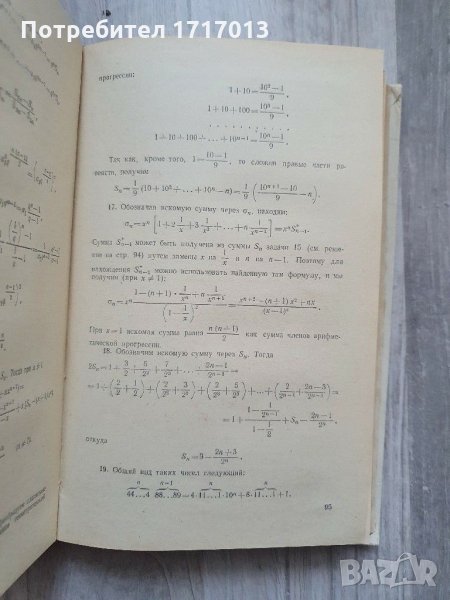 Потребител 1717013
прогрессии:
1+10=\frac{10^2-1}{9},
1+10+100=\frac{10^3-1}{9},
. . . . . . . . .
1+10+100+...+10^{n-1}=\frac{10^n-1}{9}
Так как, кроме того, 1=\frac{10-1}{9}, то сложив правые части ра-
венств, получим
S_n=\frac{1}{9}(10+10^2+...+10^n-n)=\frac{1}{9}\left(\frac{10^{n+1}-10}{9}-n\right).
17. Обозначив искомую сумму через σ_n, находим:
σ_n=x^n\left[1+2\frac{1}{x}+3\frac{1}{x^2}+...+n\frac{1}{x^{n-1}}\right]=x^n S'_{n-1}.
Сумма S'_{n-1} может быть получена из суммы S_n задачи 15 (см. реше-
ние на стр. 94) путем замены x на \frac{1}{x} и n на n—1. Поэтому для
нахождения S'_{n-1} можно использовать найденную там формулу, и мы
получим (при x≠1):
σ_n=x^n\frac{1-(n+1)\cdot\frac{1}{x^n}+n\frac{1}{x^{n+1}}}{\left(1-\frac{1}{x}\right)^2}=\frac{x^{n+2}-(n+1)x^2+nx}{(x-1)^2}.
При x=1 искомая сумма равна \frac{n(n+1)}{2} как сумма членов арифме-
тической прогрессии.
18. Обозначим искомую сумму через S_n. Тогда
2S_n=1+\frac{3}{2}+\frac{5}{2^2}+\frac{7}{2^3}+...+\frac{2n-1}{2^{n-1}}=
=1+\left(\frac{2}{2}+\frac{1}{2}\right)+\left(\frac{2}{2^2}+\frac{3}{2^2}\right)+\left(\frac{2}{2^3}+\frac{5}{2^3}\right)+...+\left(\frac{2}{2^{n-1}}+\frac{2n-3}{2^{n-1}}\right)=
=1+\frac{1-\frac{1}{2^{n-1}}}{1-\frac{1}{2}}+S_n-\frac{2n-1}{2^n},
откуда
S_n=3-\frac{2n+3}{2^n}.
19. Общий вид таких чисел следующий:
n n—1 n n
44...4 88...89=4·11...1·10^n+8·11...1+1.
95
BAZAR